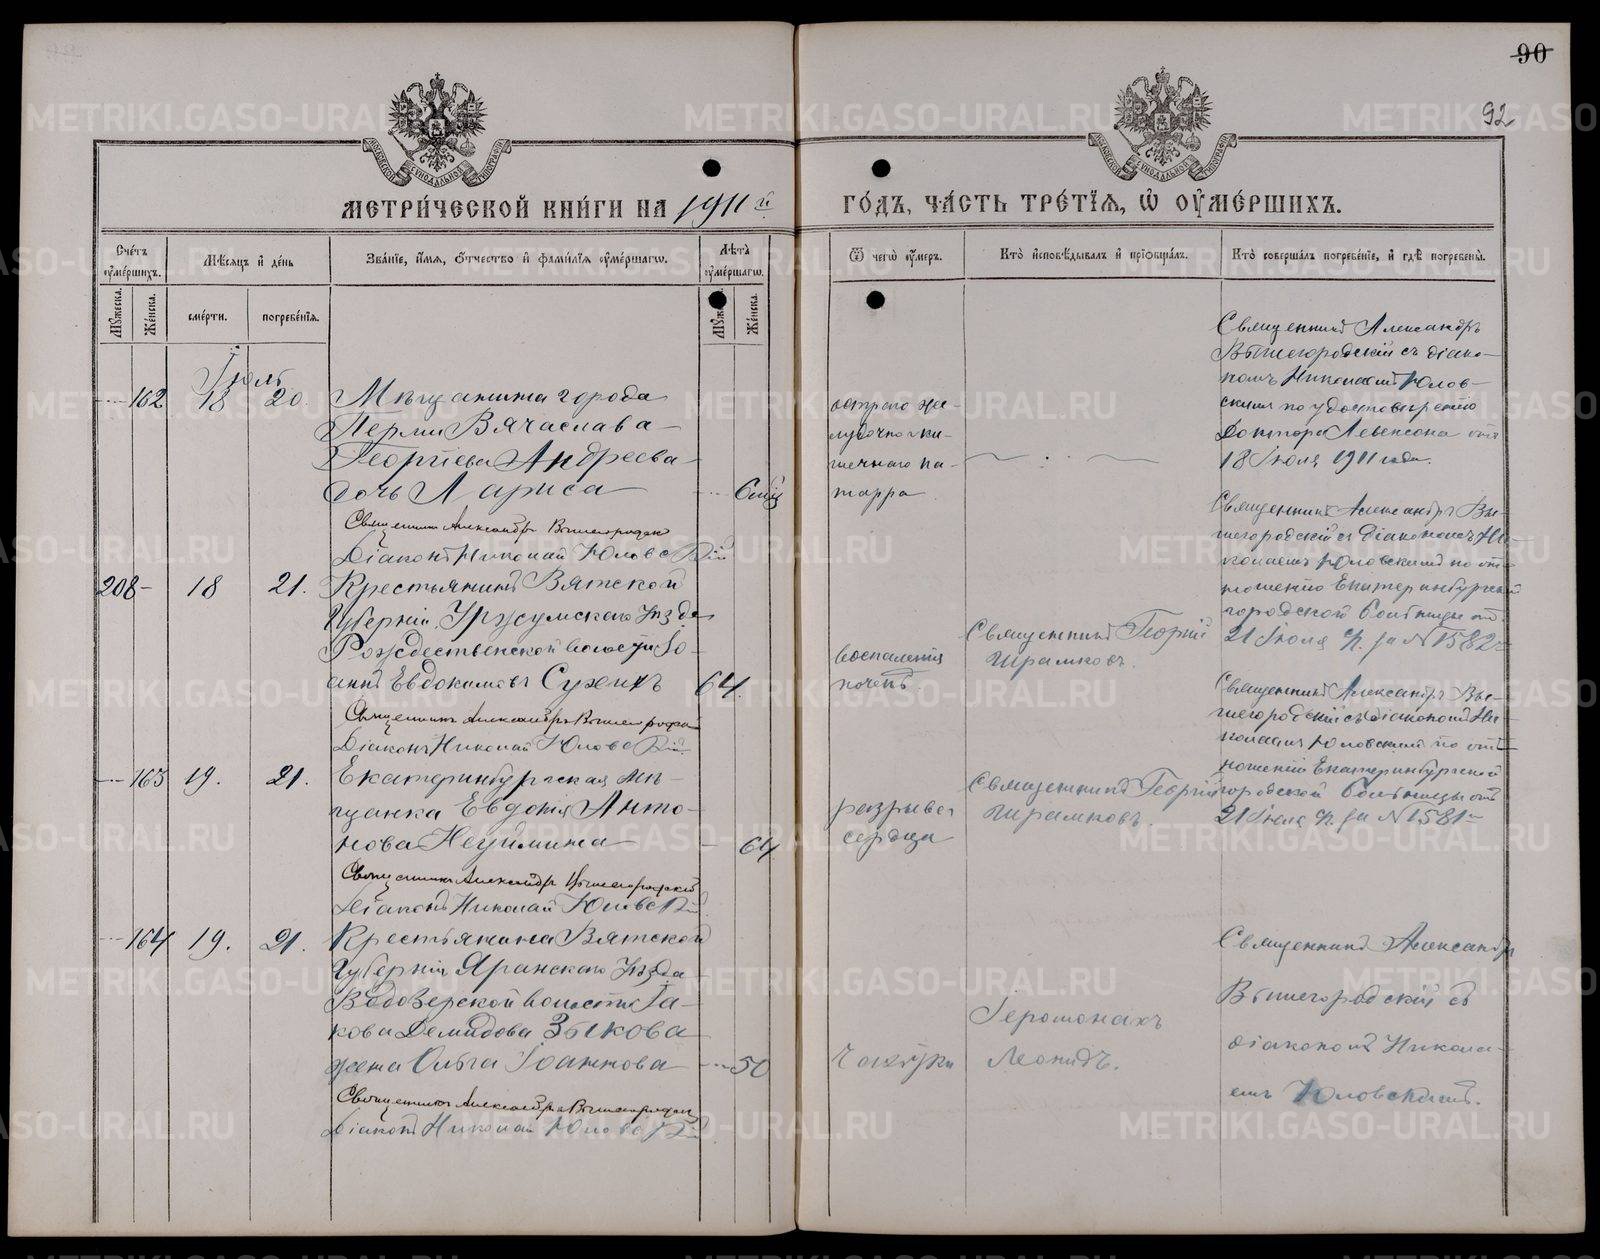 90
92
МЕТРИ́ЧЕСКОЙ КНИ́ГИ НА 1911й
ГО́ДЪ, ЧА́СТЬ ТРЕ́ТЇѦ, Ѡ҆ ОУ҆МЕ́РШИХЪ.
Сче́тъ оу҆ме́ршихъ.
Мꙋ́жеска.
Же́нска.
Мѣ́сѧцъ и҆ де́нь
сме́рти.
погребе́нїѧ.
Зва́нїе, и҆́мѧ, ѻ҆́тчество и҆ фами́лїѧ оу҆ме́ршагѡ.
Лѣта̀ оу҆ме́ршагѡ.
Же́нска.
Ѿ чегѡ̀ оу҆́меръ.
Кто̀ и҆сповѣ́дывалъ и҆ прїѡбща́лъ.
Кто̀ соверша́лъ погребе́нїе, и҆ гдѣ̀ погребены̀.
Іюль
162
18
20.
Мѣщанина города
Перми Вячаслава
Георгіева Андреева
дочь Лариса
6 мѣс
острого же-
лудочно ки-
шечнаго ка-
тарра
Священникъ Александръ
Вышегородскій съ діако-
номъ Николаемъ Юлов-
скимъ по удостовѣренію
Доктора Левенсона отъ
18 Іюля 1911 года.
Священникъ Александръ Вышегородскій
Діаконъ Николай Юловскій
208
18
21.
Крестьянинъ Вятской
Губерніи, Уржумскаго Уѣзда
Рождественской волости Іо-
аннъ Евдокимовъ Сухихъ
64.
воспаленія
почекъ.
Священникъ Георгій
Шрамковъ.
Священникъ Александръ Вы-
шегородскій съ Діакономъ Ни-
колаемъ Юловскимъ по от-
ношенію Екатеринбургской
городской больницы отъ
21 Іюля с/г. за № 1582
Священникъ Александръ Вышегородскій
Діаконъ Николай Юловскій
163
19.
21.
Екатеринбургская мѣ-
щанка Евдокія Анто-
нова Неуймина
64
разрыва
сердца
Священникъ Георгій
Шрамковъ.
Священникъ Александръ Вы-
шегородскій съ діакономъ Ни-
колаемъ Юловскимъ по от-
ношенію Екатеринбургской
городской больницы отъ
21 Іюля с/г. за № 1581
Священникъ Александръ Вышегородскій
Діаконъ Николай Юловскій
164
19.
21.
Крестьянина Вятской
Губерніи Яранскаго Уѣзда
Водозерской волости Іа-
кова Демидова Зыкова
жена Ольга Іоаннова
50
Чахотки
Іеромонахъ
Леонидъ.
Священникъ Александръ
Вышегородскій съ
діакономъ Никола-
емъ Юловскимъ.
Священникъ Александръ Вышегородскій
Діаконъ Николай Юловскій
METRIKI.GASO-URAL.RU